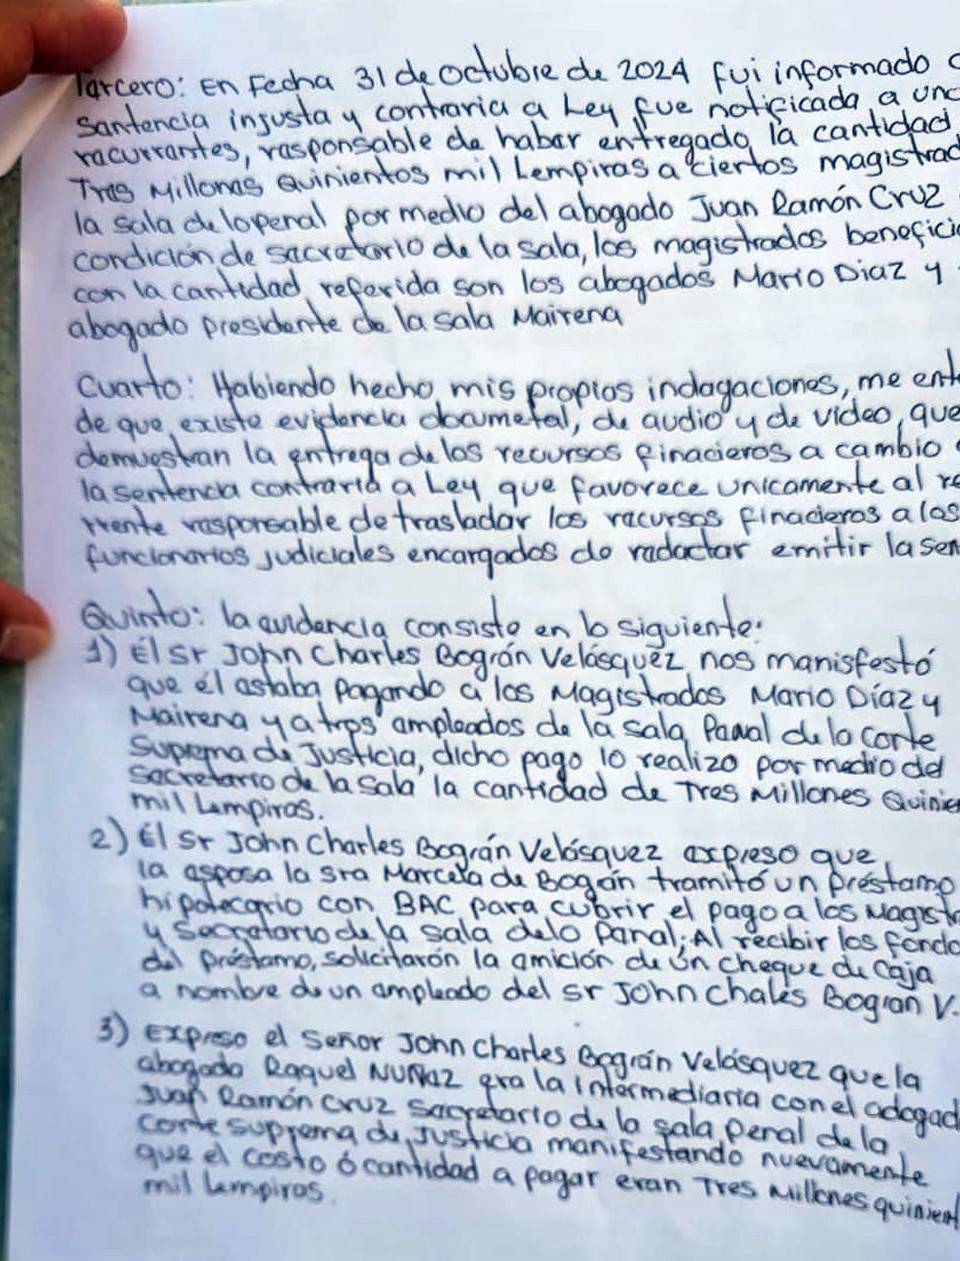 Tercero: En Fecha 31 de octubre de 2024 fui informado
Santencia injusta y contraria a Ley fue notificada, a uno
racurrantes, rasponsable de habar entregado la cantidad
Tres Millones Quinientos mil Lempiras a ciertos magistrad
la sala de lo penal por medio del abogado Juan Ramón Cruz
condición de sacretario de la sala, los magistrados benefici
con la cantidad referida son los abogados Mario Diaz y
abogado presidente de la sala Mairena
Cuarto: Habiendo hecho mis propios indagaciones, me ent
de que existe evidencia documetal, de audio y de video, que
demuestran la entrega de los recursos finacieros a cambio
la sentencia contraria a Ley que favorece unicamente al re
rrente rasponsable de trasladar los racursos finacieros a los
funcionarios judiciales encargados de radactar emitir la sen
Quinto: la avidencia consiste en lo siguiente:
1) El sr John Charles Bográn Velásquez nos manisfestó
que él astaba pagando a los Magistrados Mario Díaz y
Mairena y a tres ampleados de la sala Penal de la corte
Suprema de Justicia, dicho pago lo realizo por medio del
sacretario de la sala la cantidad de Tres Millones Quinie
mil Lempiras.
2) El Sr John Charles Bográn Velásquez expreso que
la esposa la sra Marcela de Bogán tramitó un préstamo
hipotecario con BAC para cubrir el pago a los Magistr
y Secretario de la sala de lo Panal; Al recibir los fondo
del préstamo, solicitarón la amición de ún cheque de Caja
a nombre de un ampleado del sr John Chales Bogran V.
3) Expreso el Señor John Charles Bográn Velásquez que la
abogada Raquel Nuñaz era la intermediaria con el adogad
Juan Ramón cruz Sacretario de la sala penal de la
corte suprema de Justicia manifestando nuevamente
que el costo ó cantidad a pagar eran Tres Millones quinient
mil Lempiras.